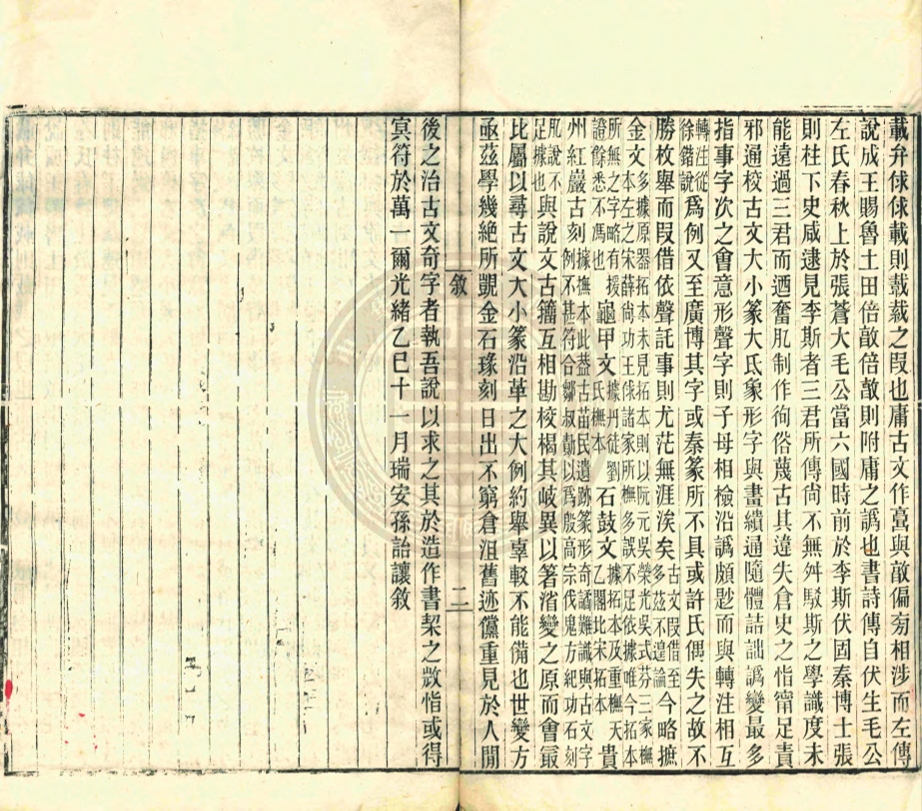 載弁俅俅載則䵧䘳之叚也庸古文作𩫏與敵偏㫄相涉而左傳
說成王賜魯土田倍敵倍敵則附庸之譌也書詩傳自伏生毛公
左氏春秋上於張蒼大毛公當六國時前於李斯伏固秦博士張
則柱下史咸逮見李斯者三君所傳尙不無舛駁斯之學識度未
能遠過三君而迺奮肊制作徇俗蔑古其違失倉史之恉甯足責
邪通校古文大小篆大氐象形字與畫繢通隨體詰詘譌變最多
指事字次之會意形聲字則子母相檢沿譌頗尟而與轉注相互
轉注從徐鍇說爲例又至廣博其字或秦篆所不具或許氏偶失之故不
勝枚舉而叚借依聲託事則尤茫無涯涘矣古文叚借至多茲不遑論今略摭
金文多據原器拓本未見拓本則以阮元吳榮光吳式芬三家橅本左之宋薛尙功王俅諸家所橅多誤不足依據唯今拓本
所無之字略有援證餘悉不馮也龜甲文據丹徒劉氏橅本石鼓文據拓本及重橅天乙閣北宋拓本貴
州紅巖古刻據橅本此葢古苗民遺跡篆形奇譎難識與古文字例不甚符合鄒叔勣以爲殷高宗伐鬼方紀功石刻
肊說不足據也與說文古籀互相勘校楬其歧異以箸渻變之原而會㝡
比屬以尋古文大小篆沿革之大例約舉辜較不能備也世變方
亟茲學幾絕所覬金石瑑刻日出不窮倉沮舊迹儻重見於人閒
敘 二
後之治古文奇字者執吾說以求之其於造作書栔之敚恉或得
冥符於萬一爾光緒乙巳十一月瑞安孫詒讓敘